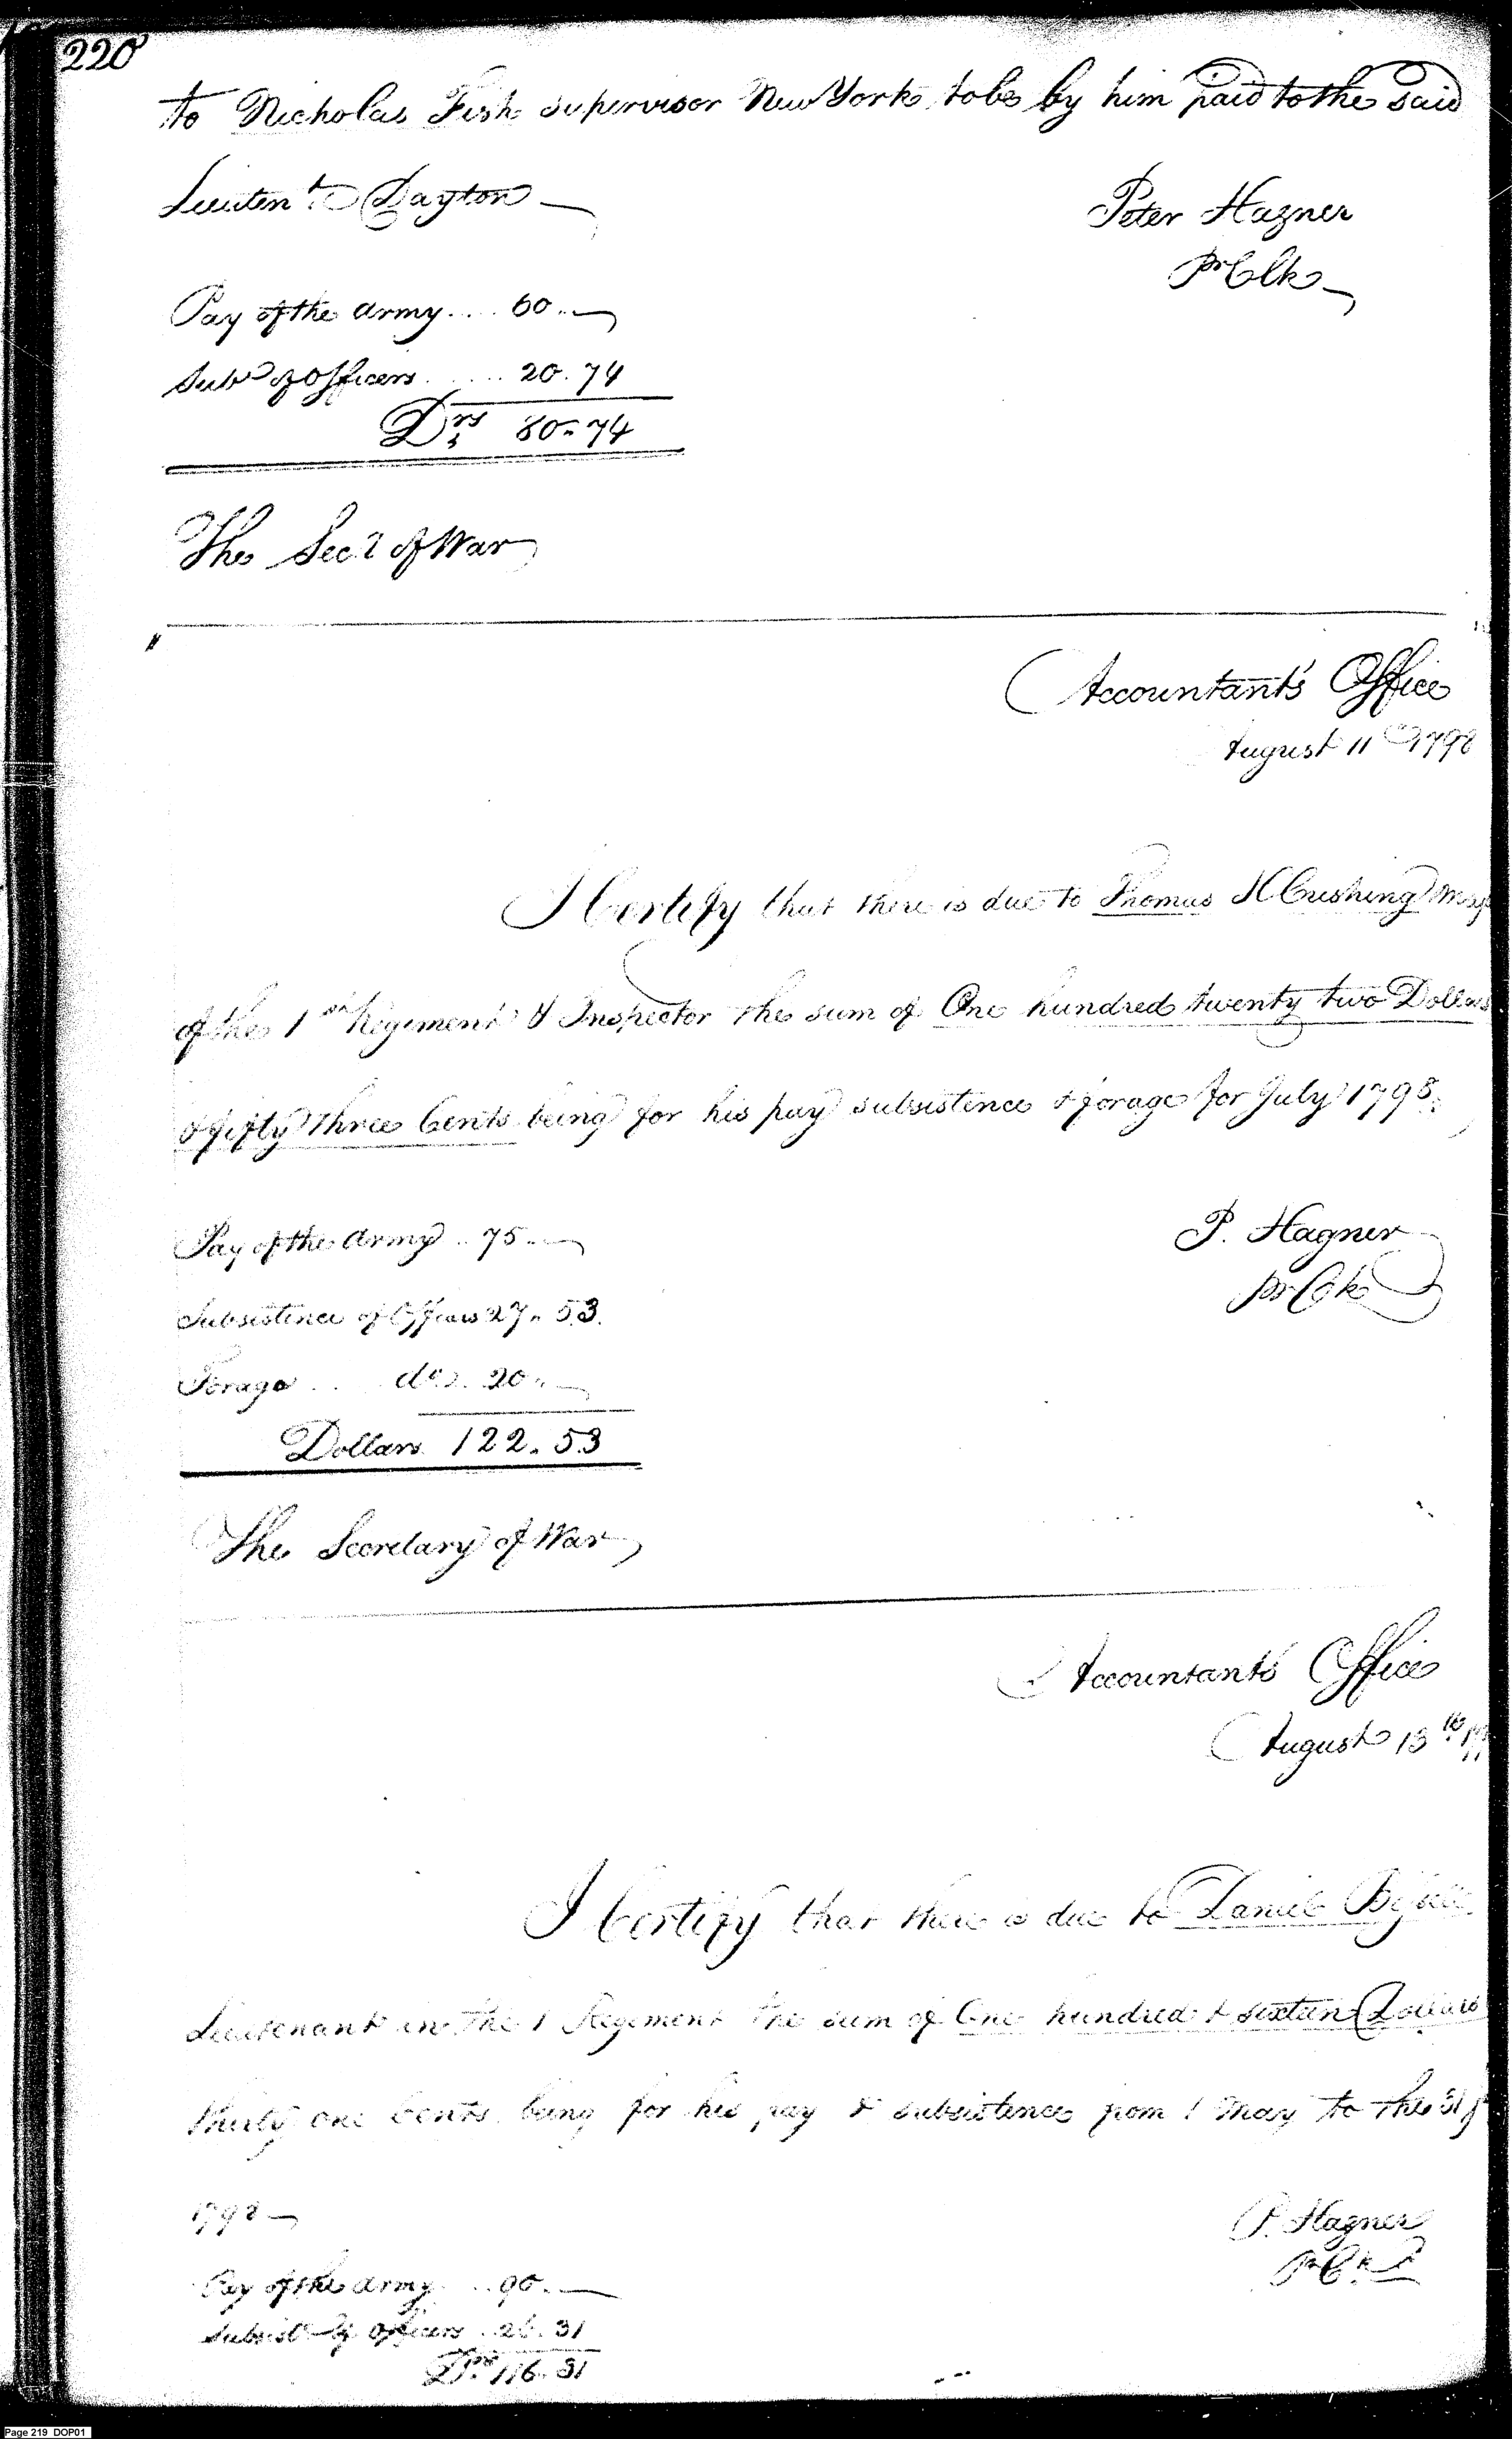 220
to Nicholas Fish supervisor New York to be by him paid to the said
Lieutent Dayton
Peter Hagner
pr Clk
Pay of the army .... 60 ..
Subs of Officers ...... 20. 74
Drs 80. 74
The Secy of War
Accountant's Office
August 11th 1798
I Certify that there is due to Thomas H Cushing Maj
of the 1st Regiment & Inspector the sum of One hundred twenty two Dollars
& fifty three Cents being for his pay subsistence & forage for July 1798.
Pay of the Army .. 75 ..
P. Hagner
pr Clk
Subsistence of Officers 27. 53.
Forage .... do .. 20 ..
Dollars 122. 53
The Secretary of War
Accountants Office
August 13th 17
I Certify that there is due to Daniel
Lieutenant in the 1 Regiment the sum of One hundred & sixteen Dollars
thirty one Cents being for his pay & subsistence from 1 May to the 31
1798
P. Hagner
pr Clk
Pay of the army .. 90 ..
Subsist of Officers .. 26. 31
Drs 116. 31
Page 219 DOP01